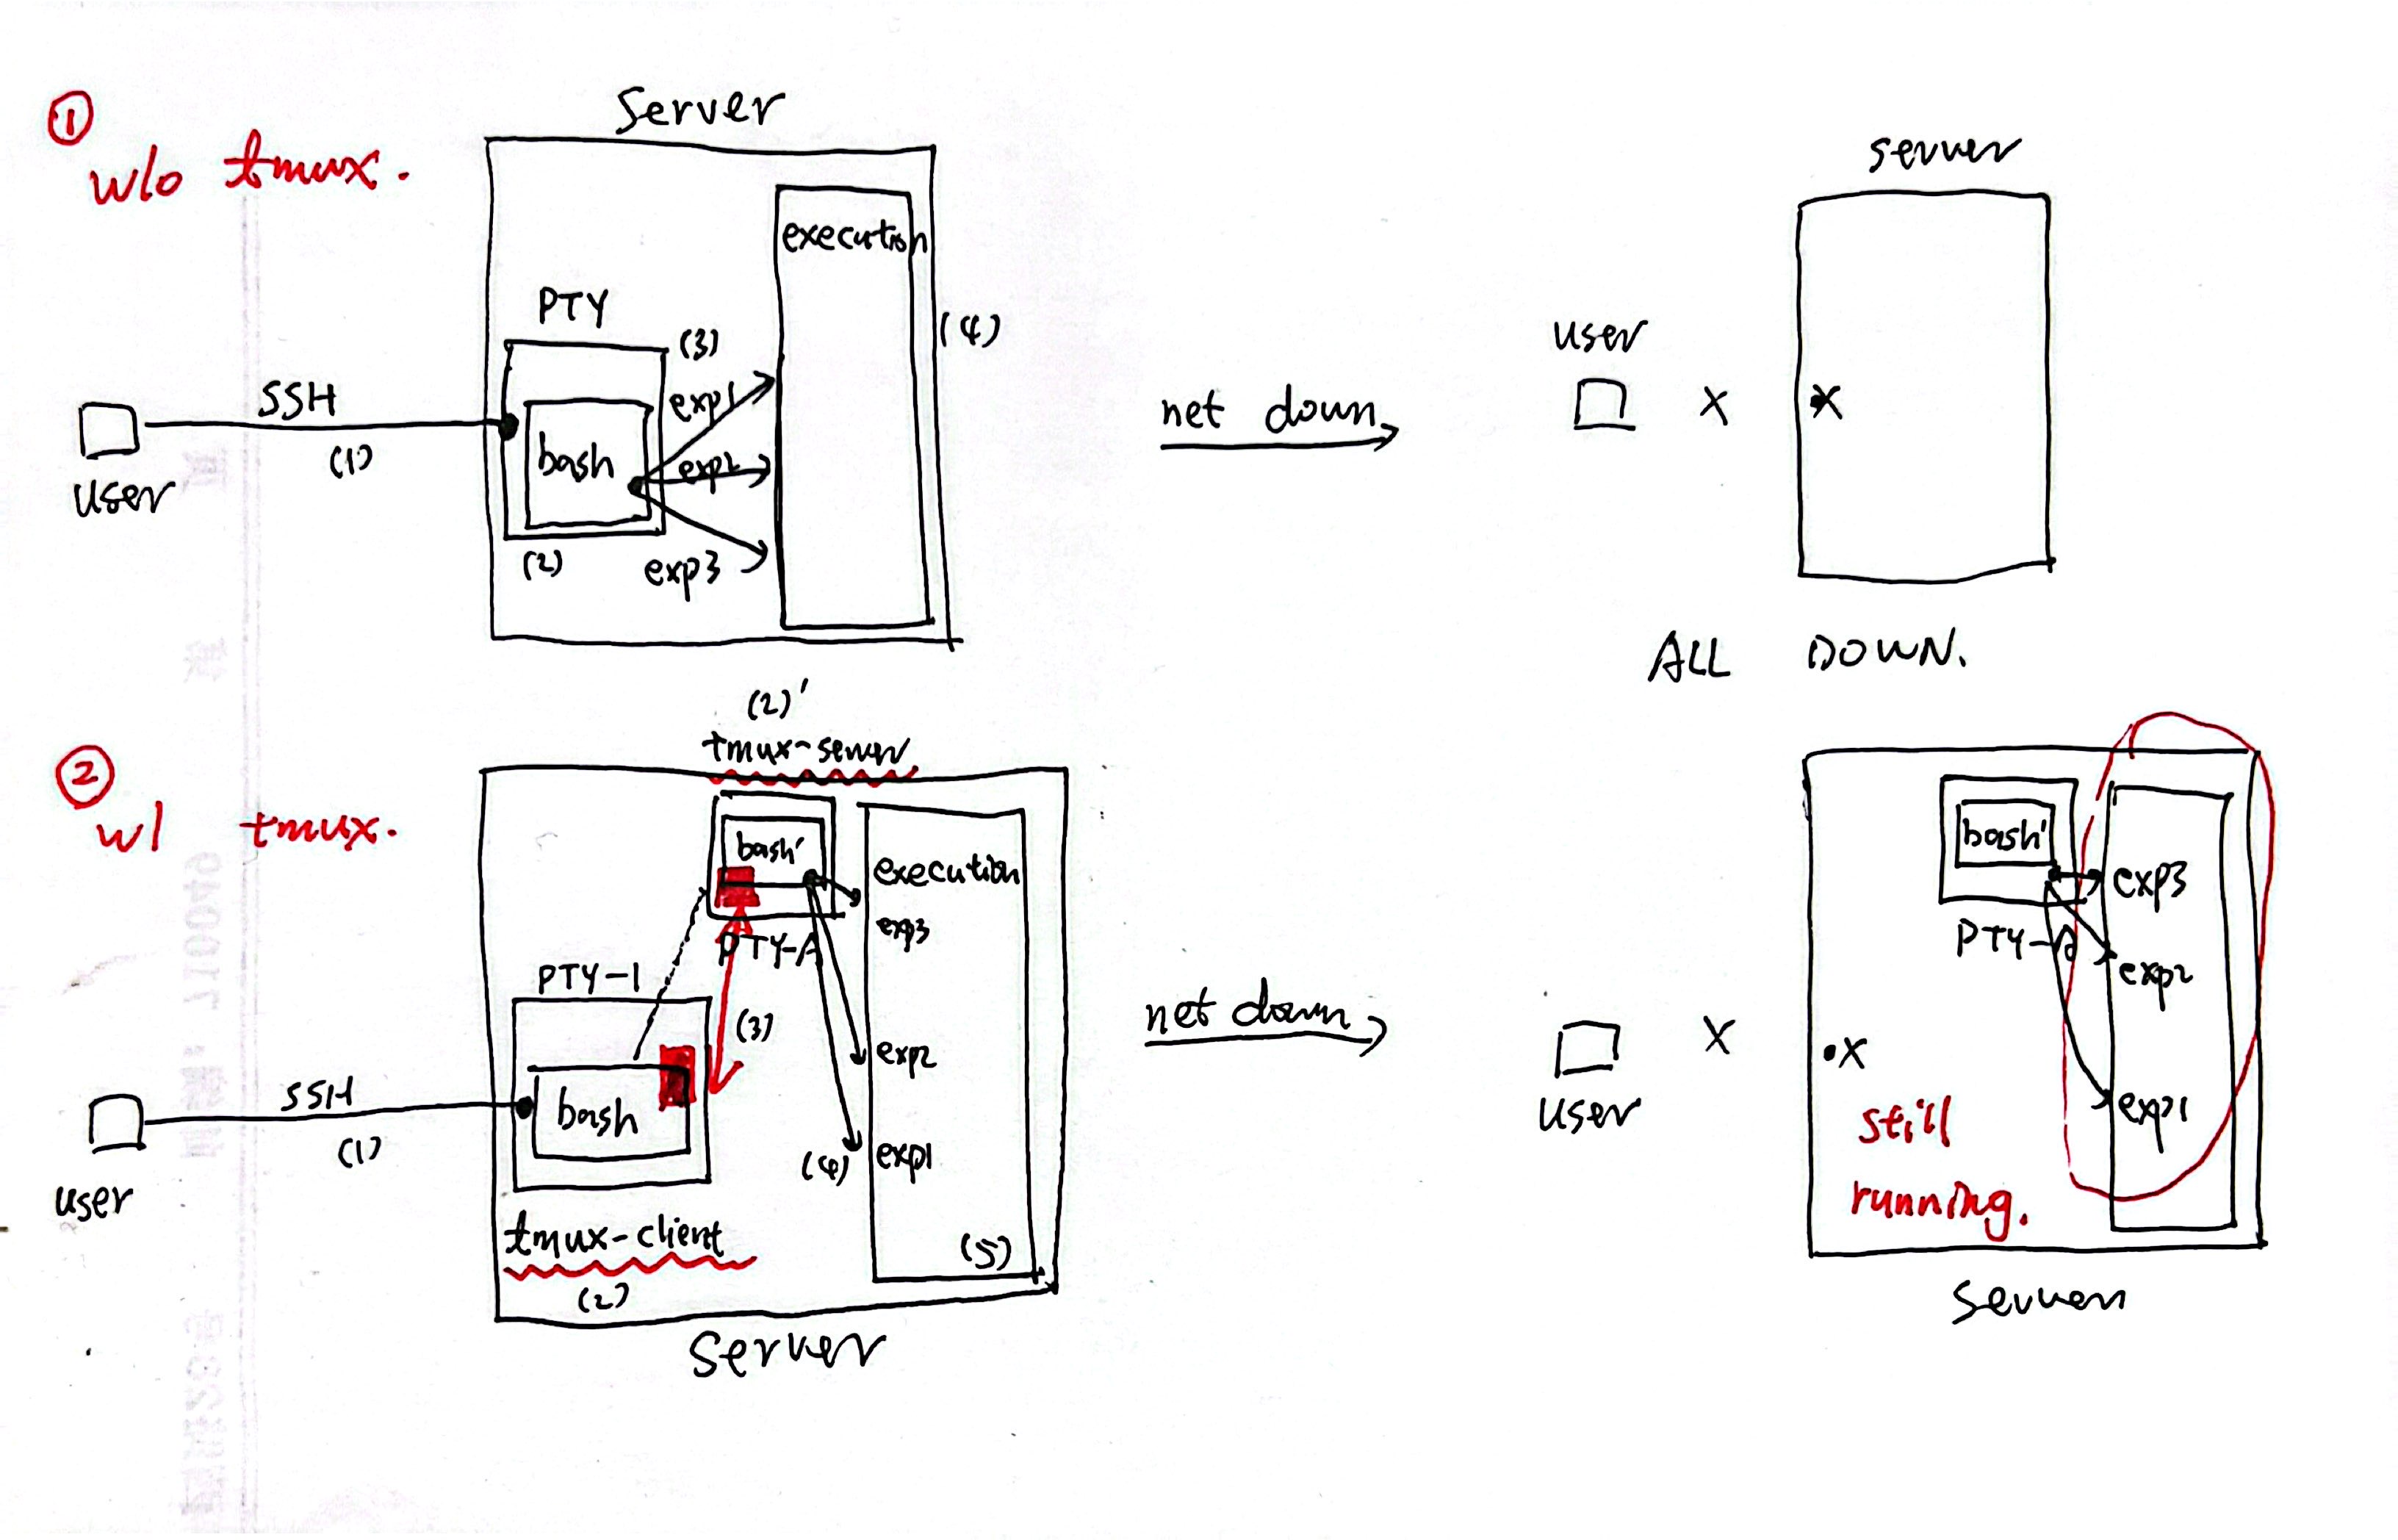 ①
w/o tmux.
Server
execution
PTY
(3)
(4)
exp1
SSH
bash
exp2
(1)
user
(2)
exp3
net down
user
X
server
X
ALL DOWN.
②
w/ tmux.
(2)'
tmux-server
bash'
execution
PTY-A
exp3
PTY-1
(3)
exp2
SSH
bash
(1)
(4)
exp1
user
tmux-client
(5)
(2)
Server
net down
user
X
X
bash'
exp3
PTY-A
exp2
exp1
still
running.
Server